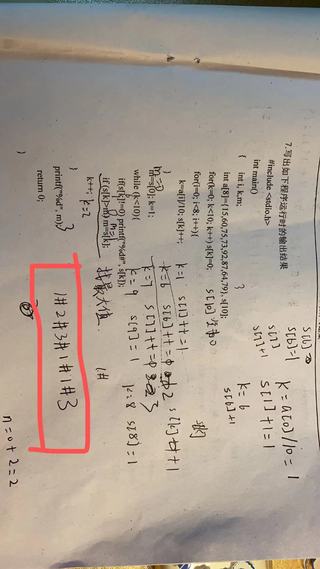 7.写出如下程序运行时的输出结果
#include <stdio.h>
int main()
{ int i,k,m;
int a[8]={15,60,75,73,92,87,64,79}, s[10];
for(k=0; k<10; k++) s[k]=0;
for(i=0; i<8; i++){
k=a[i]/10; s[k]++;
}
m=s[0]; k=1;
while (k<10){
if(s[k]!=0) printf("%d#", s[k]);
if(s[k]>m) m=s[k];
k++;
}
printf("%d", m);
return 0;
}
s[k] 全为0
k=1 s[1]++=1
k=9 s[9]=1
k=8 s[8]=1
k=2
找最大值
1#
k=a[0]/10=1
s[1]+1=1
k=6
s[6]+1
s[6]=1
s[7]+1
1#2#3#1#1#3
n=0+2=2